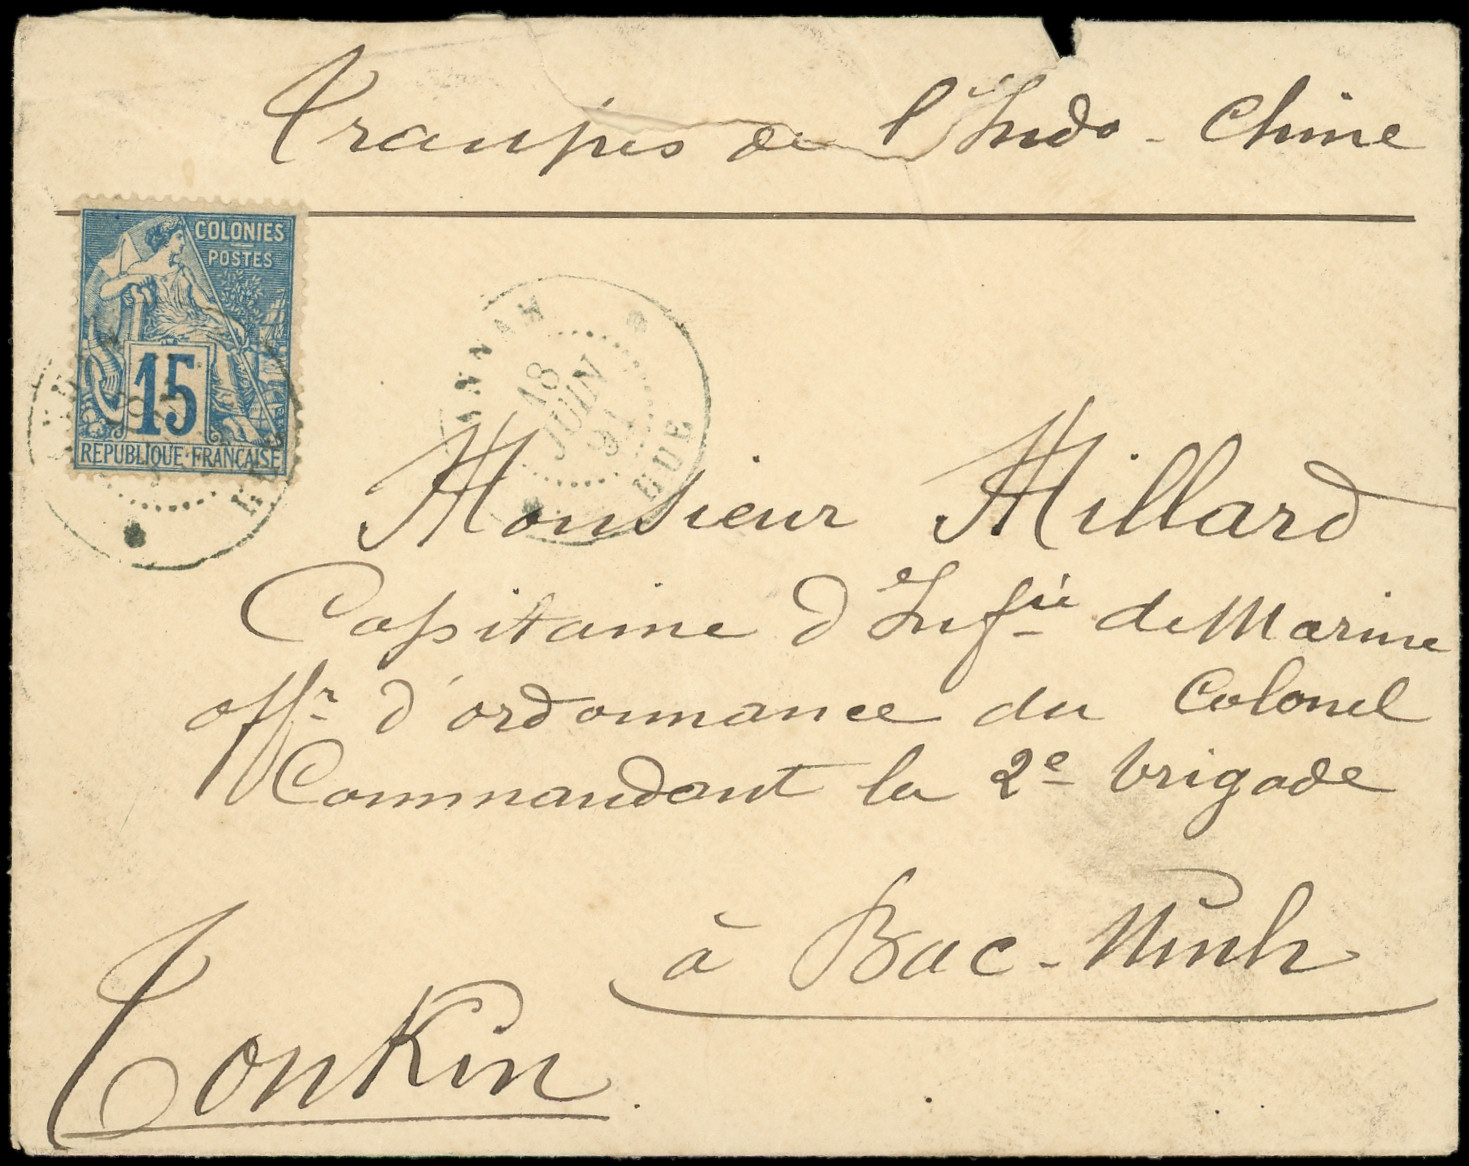 Troupes de l'Indo-Chine
COLONIES
POSTES
15
REPUBLIQUE FRANÇAISE
ANNAM
18
JUIN
91
HUE
Monsieur Millard
Capitaine d'Infie de Marine
offr d'ordonnance du Colonel
Commandant la 2e brigade
à Bac-Ninh
Tonkin.